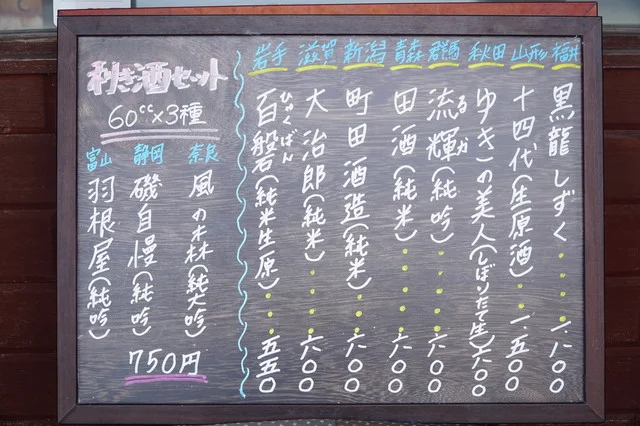 福井
黒龍しずく・・・・一、一〇〇
山形
十四代(生原酒)・・一、五〇〇
秋田
ゆきの美人(しぼりたて生)六〇〇
群馬
流輝(純吟)・・・・六〇〇
るか
青森
田酒(純米)・・・・・六〇〇
新潟
町田酒造(純米)・・・六〇〇
滋賀
大治郎(純米)・・・・六〇〇
岩手
百磐(純米生原)・・・五五〇
ひゃくばん
利き酒セット
60cc×3種
奈良
風の森(純大吟)
静岡
磯自慢(純吟)
富山
羽根屋(純吟)
750円